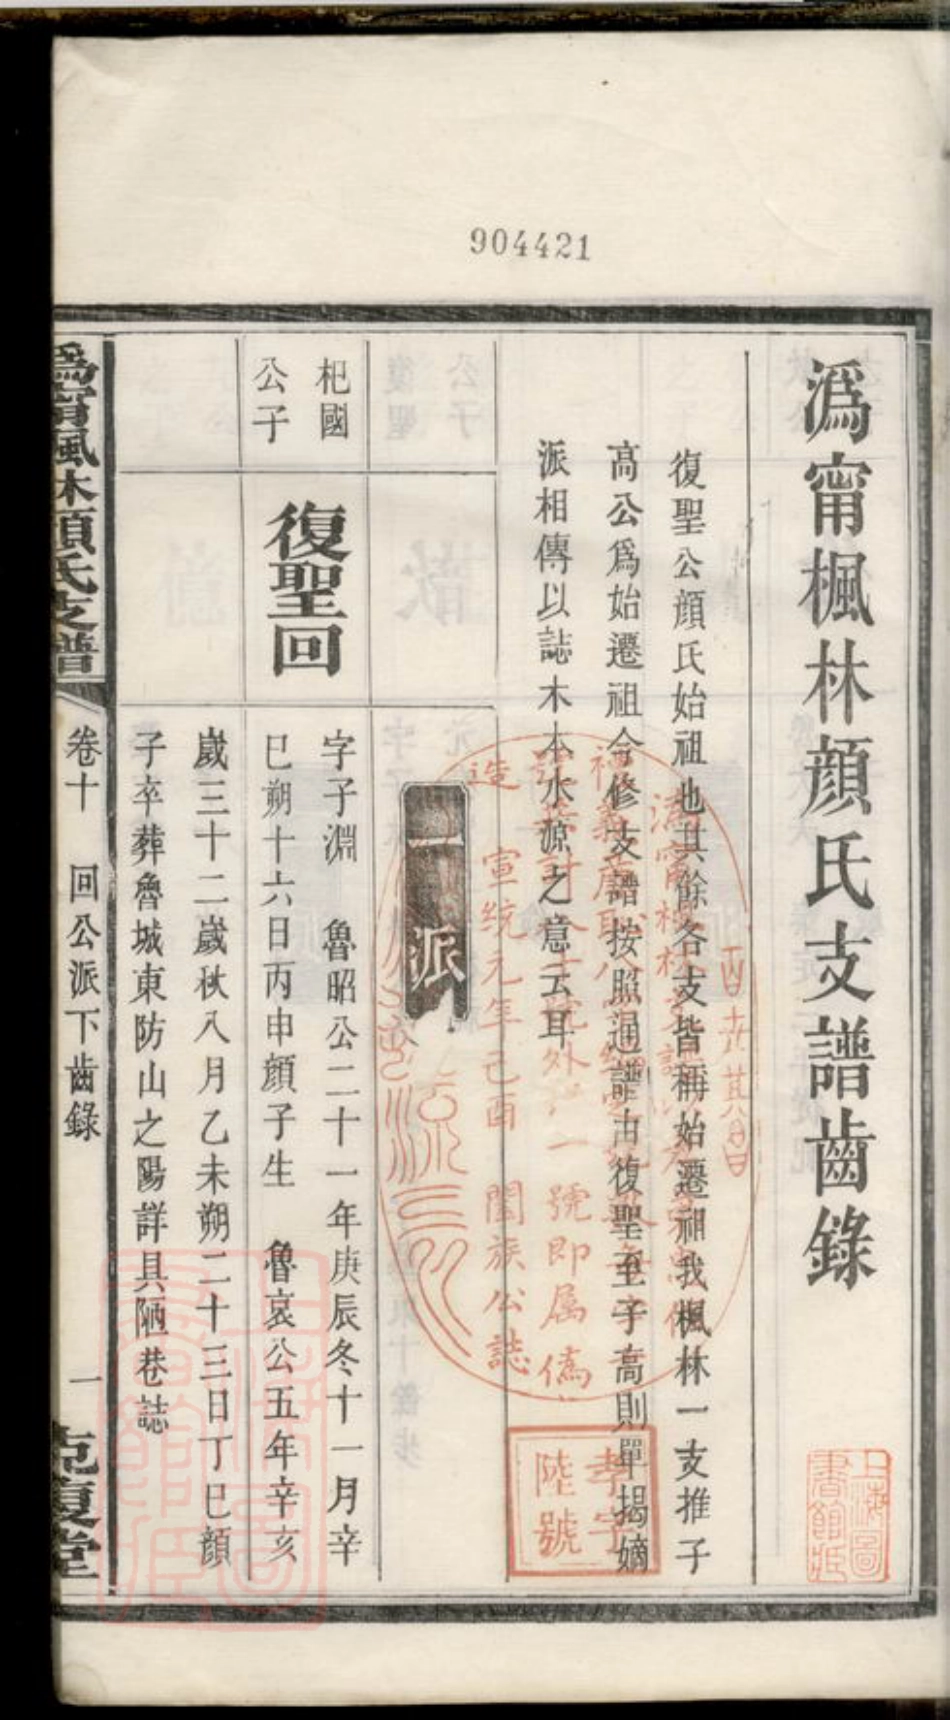 904421
溈甯楓林顔氏支譜齒錄
復聖公顔氏始祖也其餘各支皆稱始遷祖我楓林一支推子
高公爲始遷祖今修支譜按照通譜由復聖至子高則單揭嫡
派相傳以誌木本水源之意云耳
一派
杞國
公子
復聖回
字子淵 魯昭公二十一年庚辰冬十一月辛
巳朔十六日丙申顔子生 魯哀公五年辛亥
嵗三十二嵗秋八月乙未朔二十三日丁巳顔
子卒葬魯城東防山之陽詳具陋巷誌
溈甯楓林顔氏支譜
卷十 回公派下齒錄
一
克復堂
造 宣統元年己酉 闔族公誌
號外 一號即属僞
孝字
陸號
上海圖
書館藏